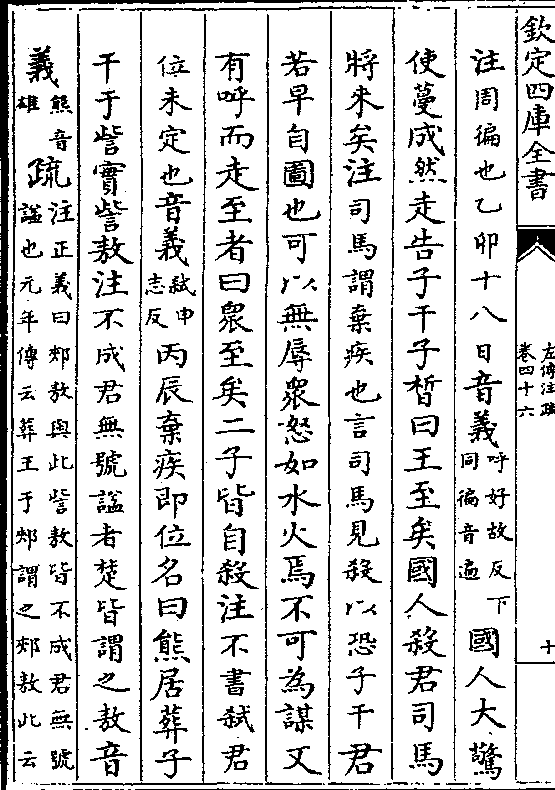 欽定四庫全書
左傳注疏
卷四十六
十
注周徧也乙卯十八日音義呼好故反下同徧音遍國人大驚
使蔓成然走告子干子晳曰王至矣國人殺君司馬
將來矣注司馬謂棄疾也言司馬見殺以恐子干君
若早自圖也可以無辱衆怒如水火焉不可為謀又
有呼而走至者曰衆至矣二子皆自殺注不書弑君
位未定也音義弑申志反丙辰棄疾即位名曰熊居葬子
干于訾實訾敖注不成君無號諡者楚皆謂之敖音
義熊音雄疏注正義曰郟敖與此訾敖皆不成君無號諡也元年傳云葬王于郟謂之郟敖此云